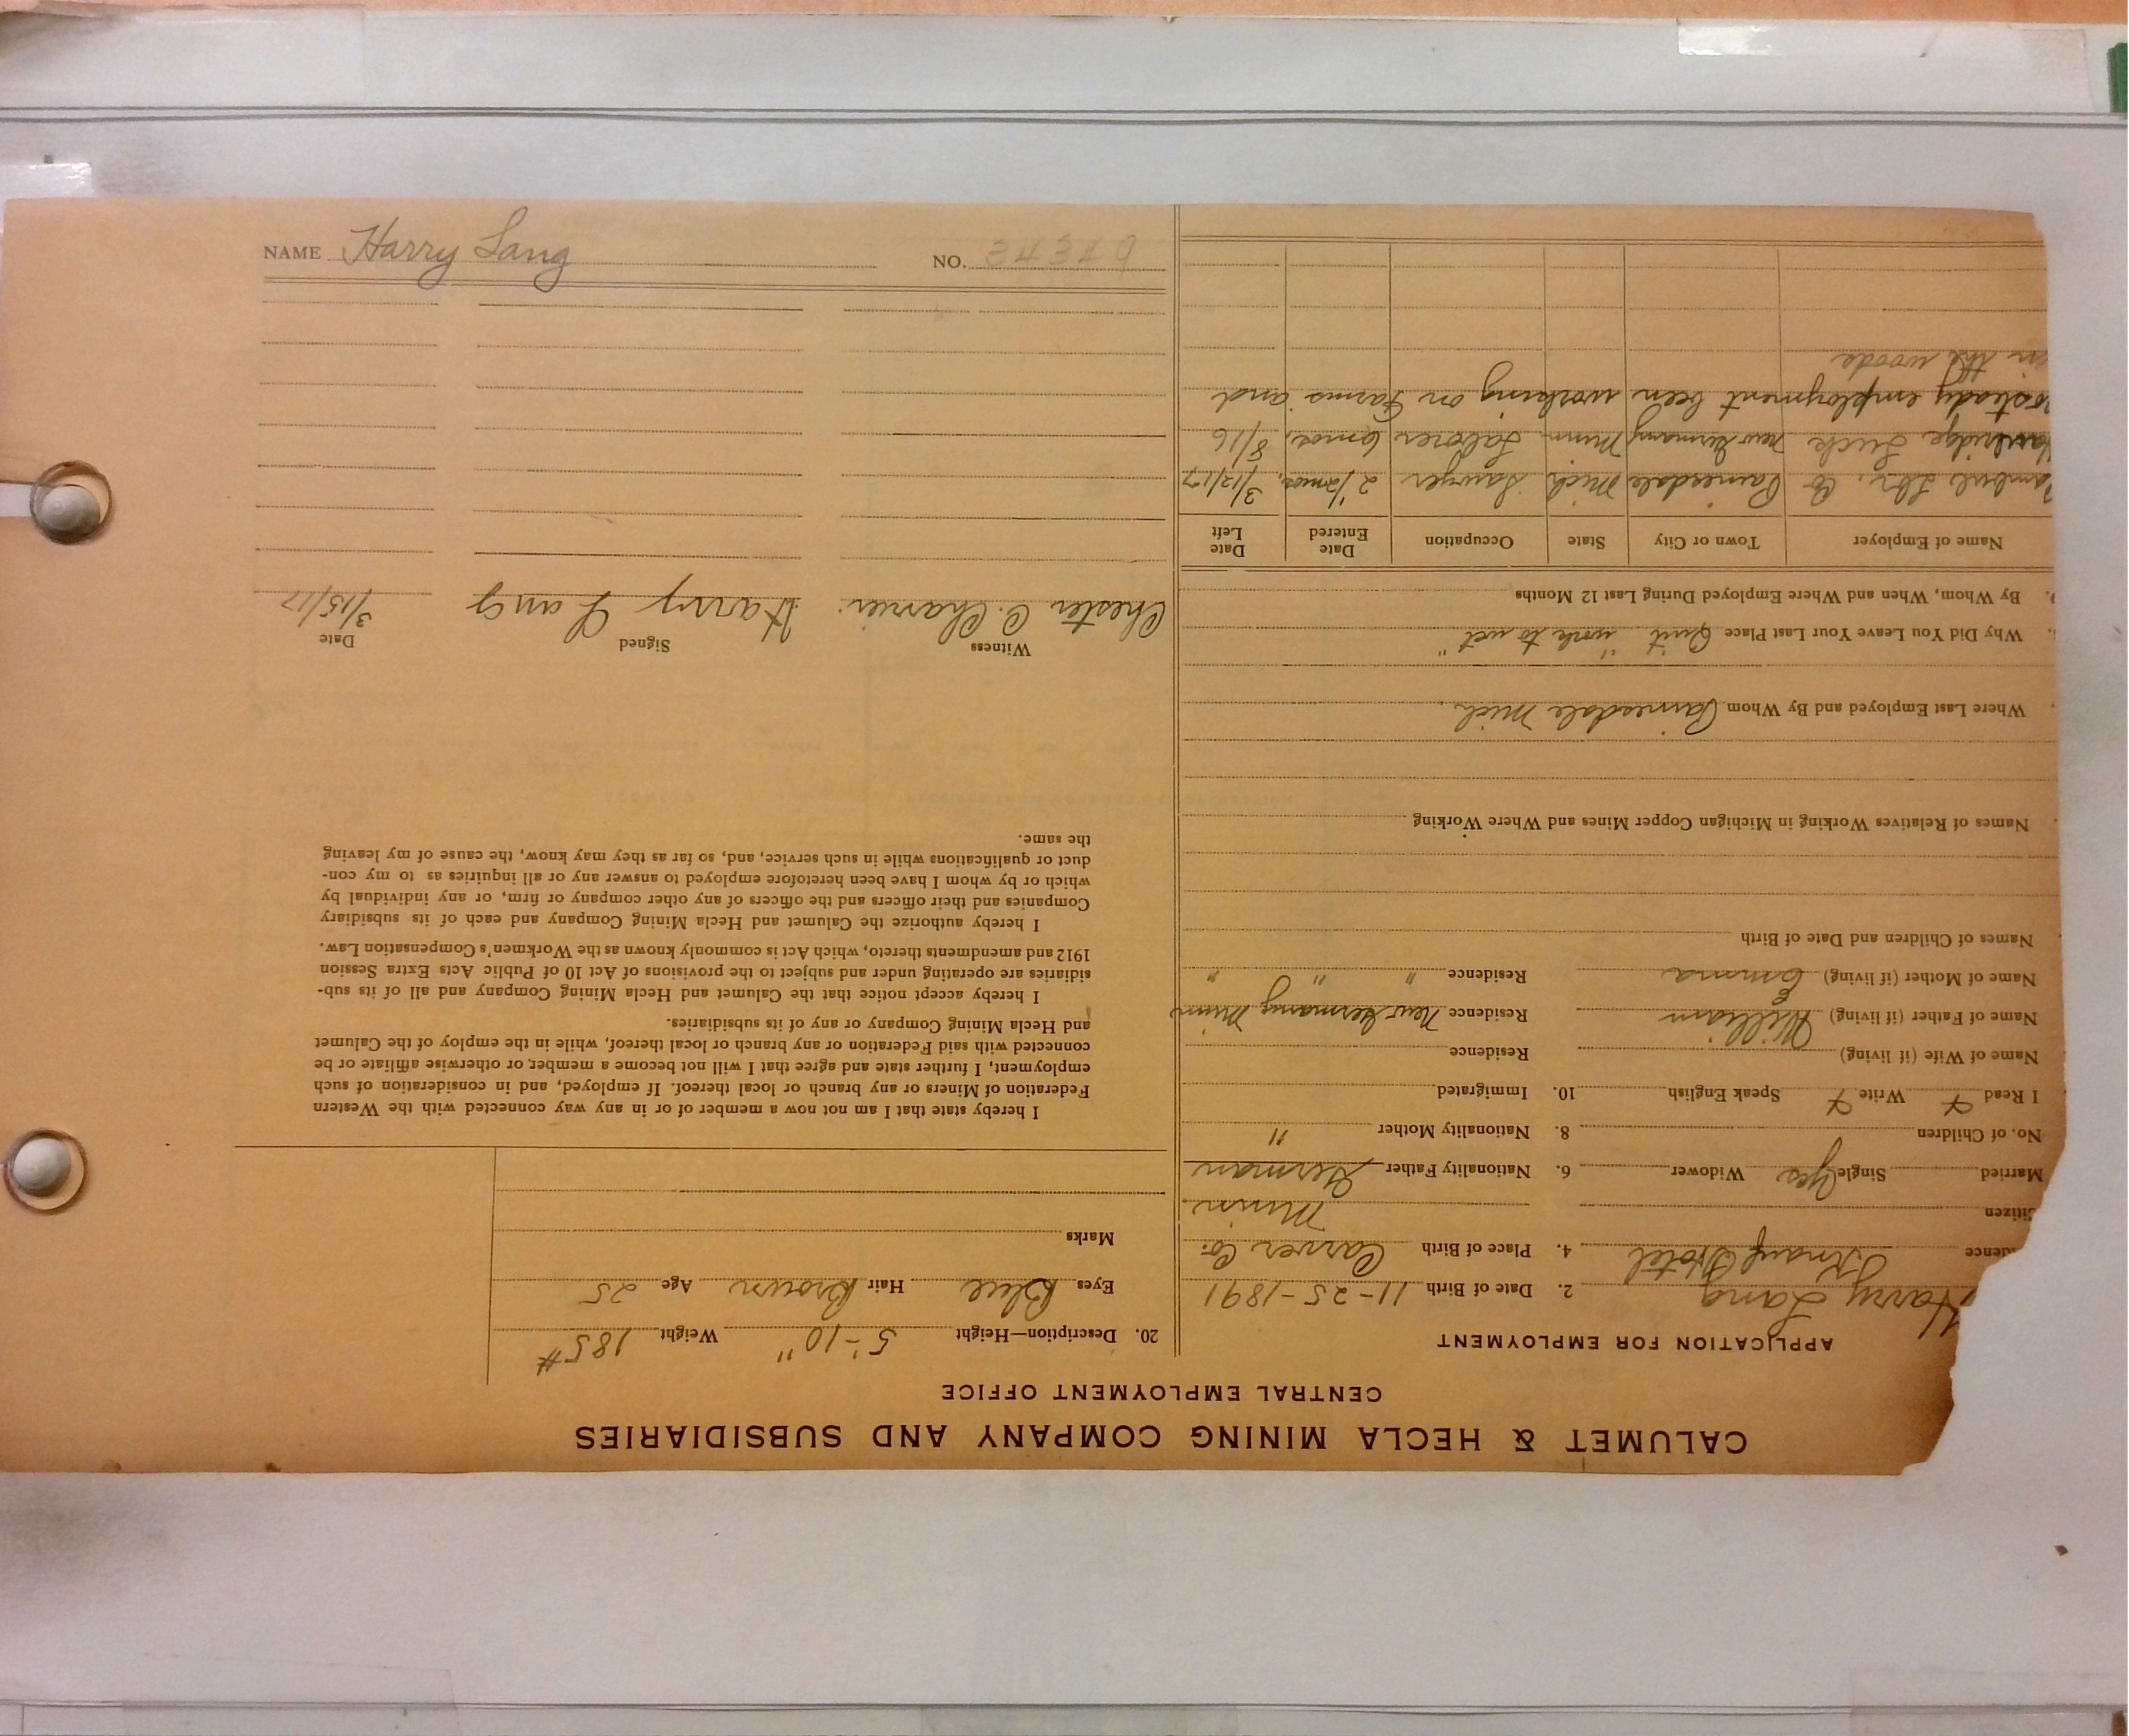 CALUMET & HECLA MINING COMPANY AND SUBSIDIARIES
CENTRAL EMPLOYMENT OFFICE
APPLICATION FOR EMPLOYMENT
Harry Lang 2. Date of Birth 11-25-1891
Hotel 4. Place of Birth Carver Co.
Minn
Married Single Yes Widower 6. Nationality Father German
No. of Children 8. Nationality Mother "
I Read Write Speak English 10. Immigrated
Name of Wife (if living) Residence
Name of Father (if living) William Residence New Germany Minn
Name of Mother (if living) Emma Residence " " "
Names of Children and Date of Birth
Names of Relatives Working in Michigan Copper Mines and Where Working
Where Last Employed and By Whom Painesdale Mich.
Why Did You Leave Your Last Place Quit "work to wet"
By Whom, When and Where Employed During Last 12 Months
Name of Employer Town or City State Occupation Date Entered Date Left
Lbr. Co Painesdale Mich Sawyer 2 1/2 mos, 3/12/17
Luck New Germany Minn Laborer 6 mos, 8/16
steady employment been working on Farms and
in the woods
20. Description—Height 5'-10" Weight 185#
Eyes Blue Hair Brown Age 25
Marks
I hereby state that I am not now a member of or in any way connected with the Western
Federation of Miners or any branch or local thereof. If employed, and in consideration of such
employment, I further state and agree that I will not become a member, or otherwise affiliate or be
connected with said Federation or any branch or local thereof, while in the employ of the Calumet
and Hecla Mining Company or any of its subsidiaries.
I hereby accept notice that the Calumet and Hecla Mining Company and all of its sub-
sidiaries are operating under and subject to the provisions of Act 10 of Public Acts Extra Session
1912 and amendments thereto, which Act is commonly known as the Workmen's Compensation Law.
I hereby authorize the Calumet and Hecla Mining Company and each of its subsidiary
Companies and their officers and the officers of any other company or firm, or any individual by
which or by whom I have been heretofore employed to answer any or all inquiries as to my con-
duct or qualifications while in such service, and, so far as they may know, the cause of my leaving
the same.
Witness Signed Date
Chester C. Harry Lang 3/15/17
NAME Harry Lang NO. 34340